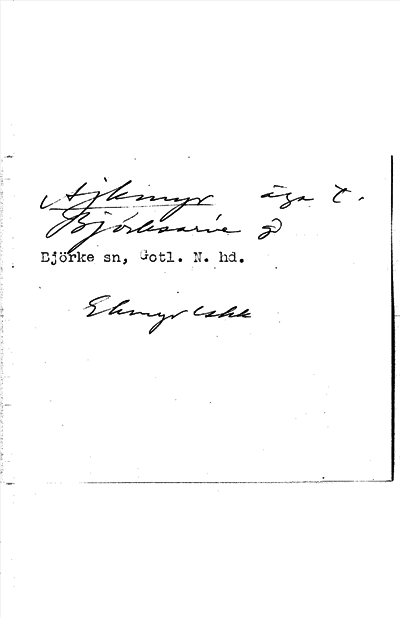 Ajkmyr äga t.
Björksarve
Björke sn, Gotl. N. hd.
Ekmyr